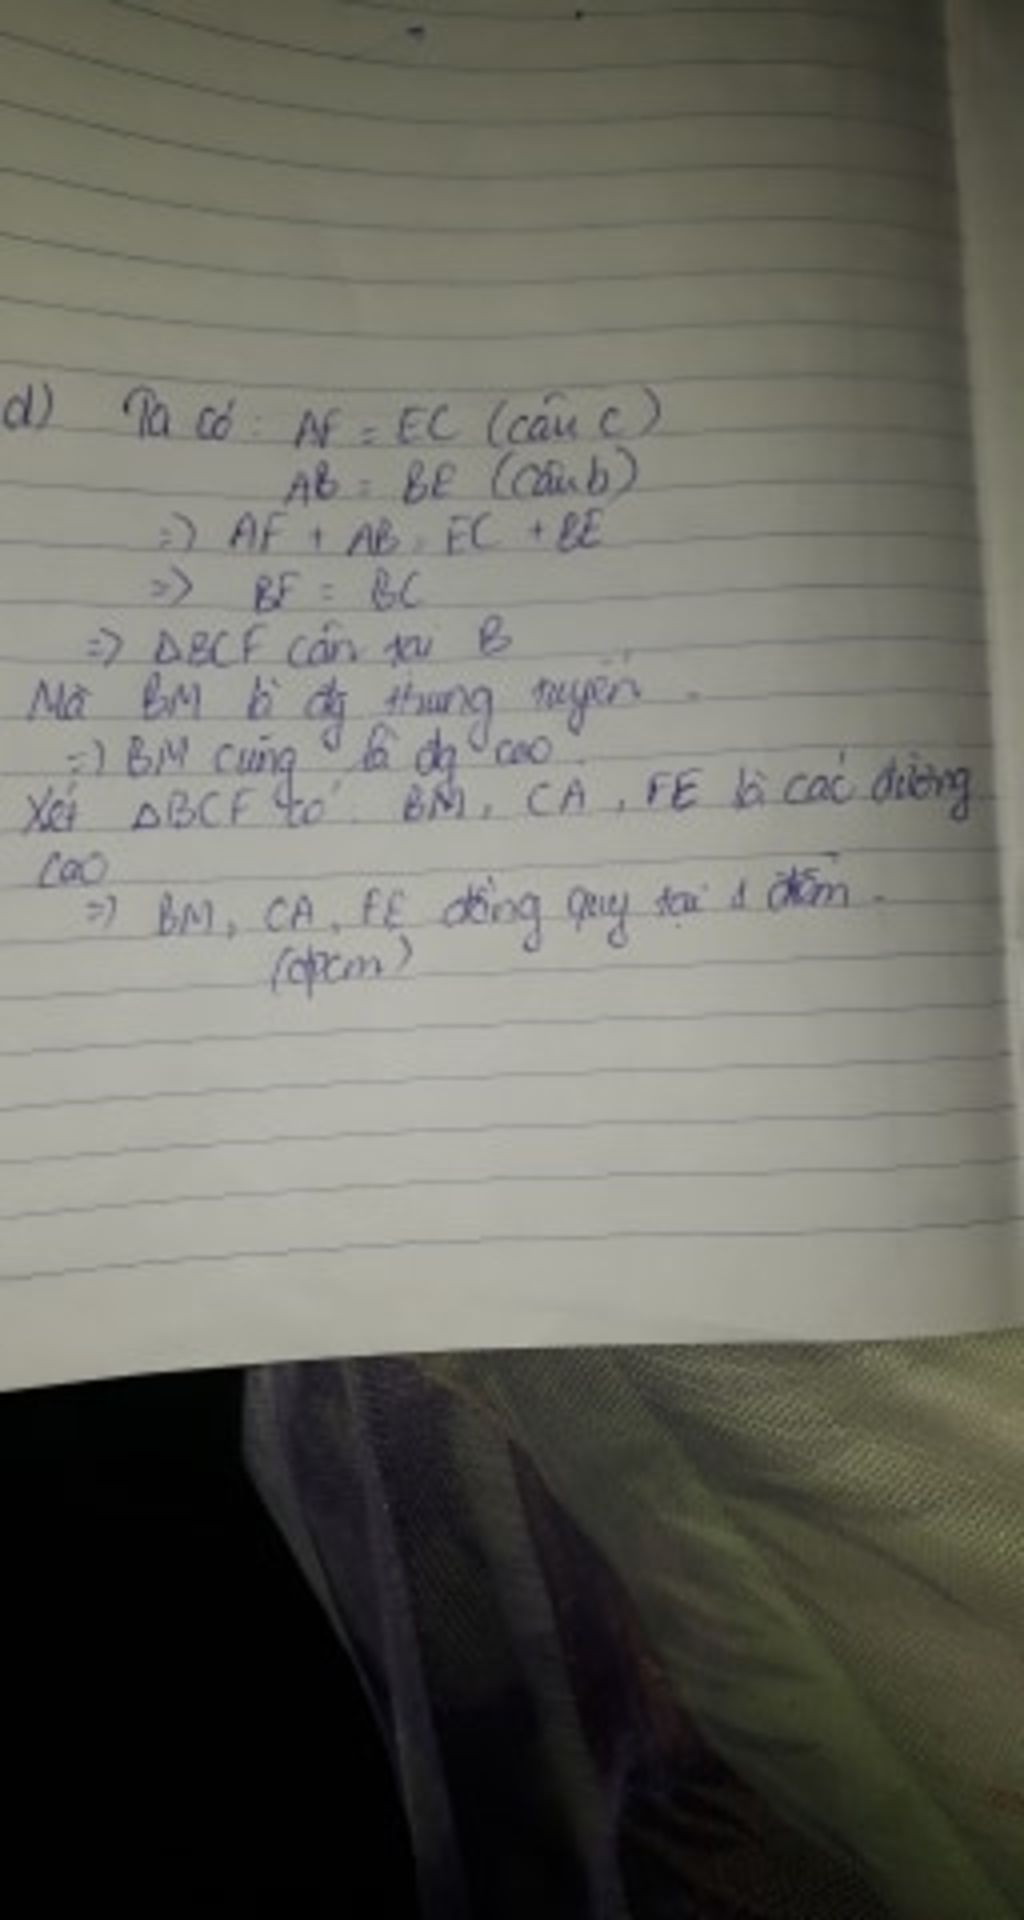 d) Ta có: AF = EC (câu c)
AB = BE (câu b)
=> AF + AB = EC + BE
=> BF = BC
=> ΔBCF cân tại B
Mà BM là đg trung tuyến.
=> BM cũng là đg cao.
Xét ΔBCF có: BM, CA, FE là các đường
cao
=> BM, CA, FE đồng quy tại 1 điểm.
(đpcm)